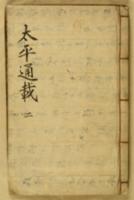 太平通載 二